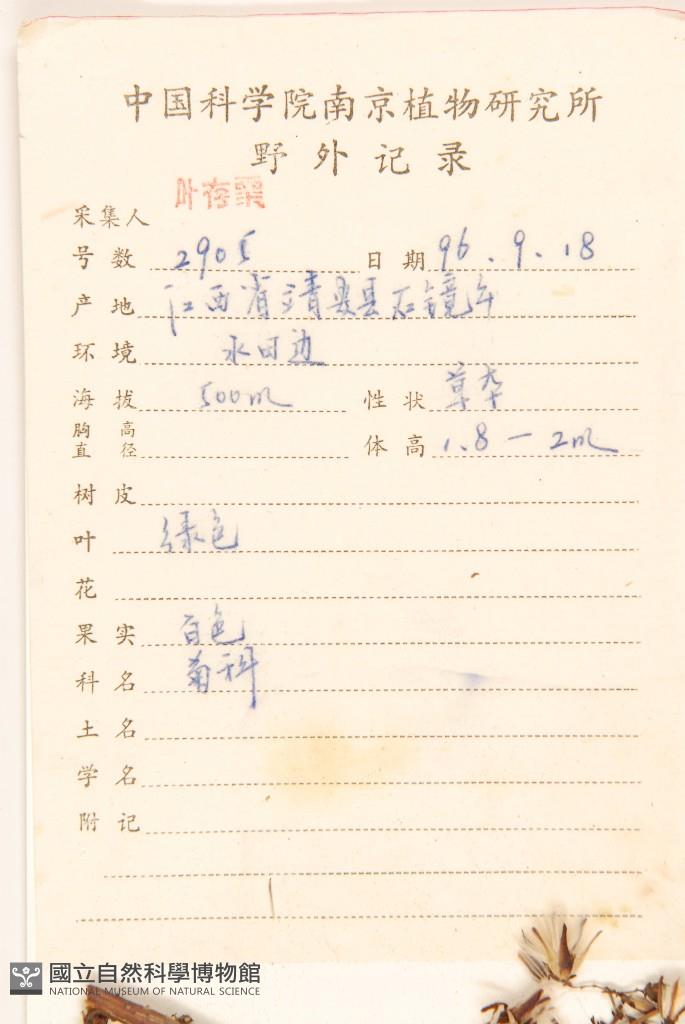 中国科学院南京植物研究所
野外记录
叶存粟
采集人
号数 2905 日期 96.9.18
产地 江西省靖安县石镜
环境 水田边
海拔 500m 性状 草本
胸高直径 体高 1.8-2m
树皮
叶 绿色
花
果实 白色
科名 菊科
土名
学名
附记
國立自然科學博物館
NATIONAL MUSEUM OF NATURAL SCIENCE